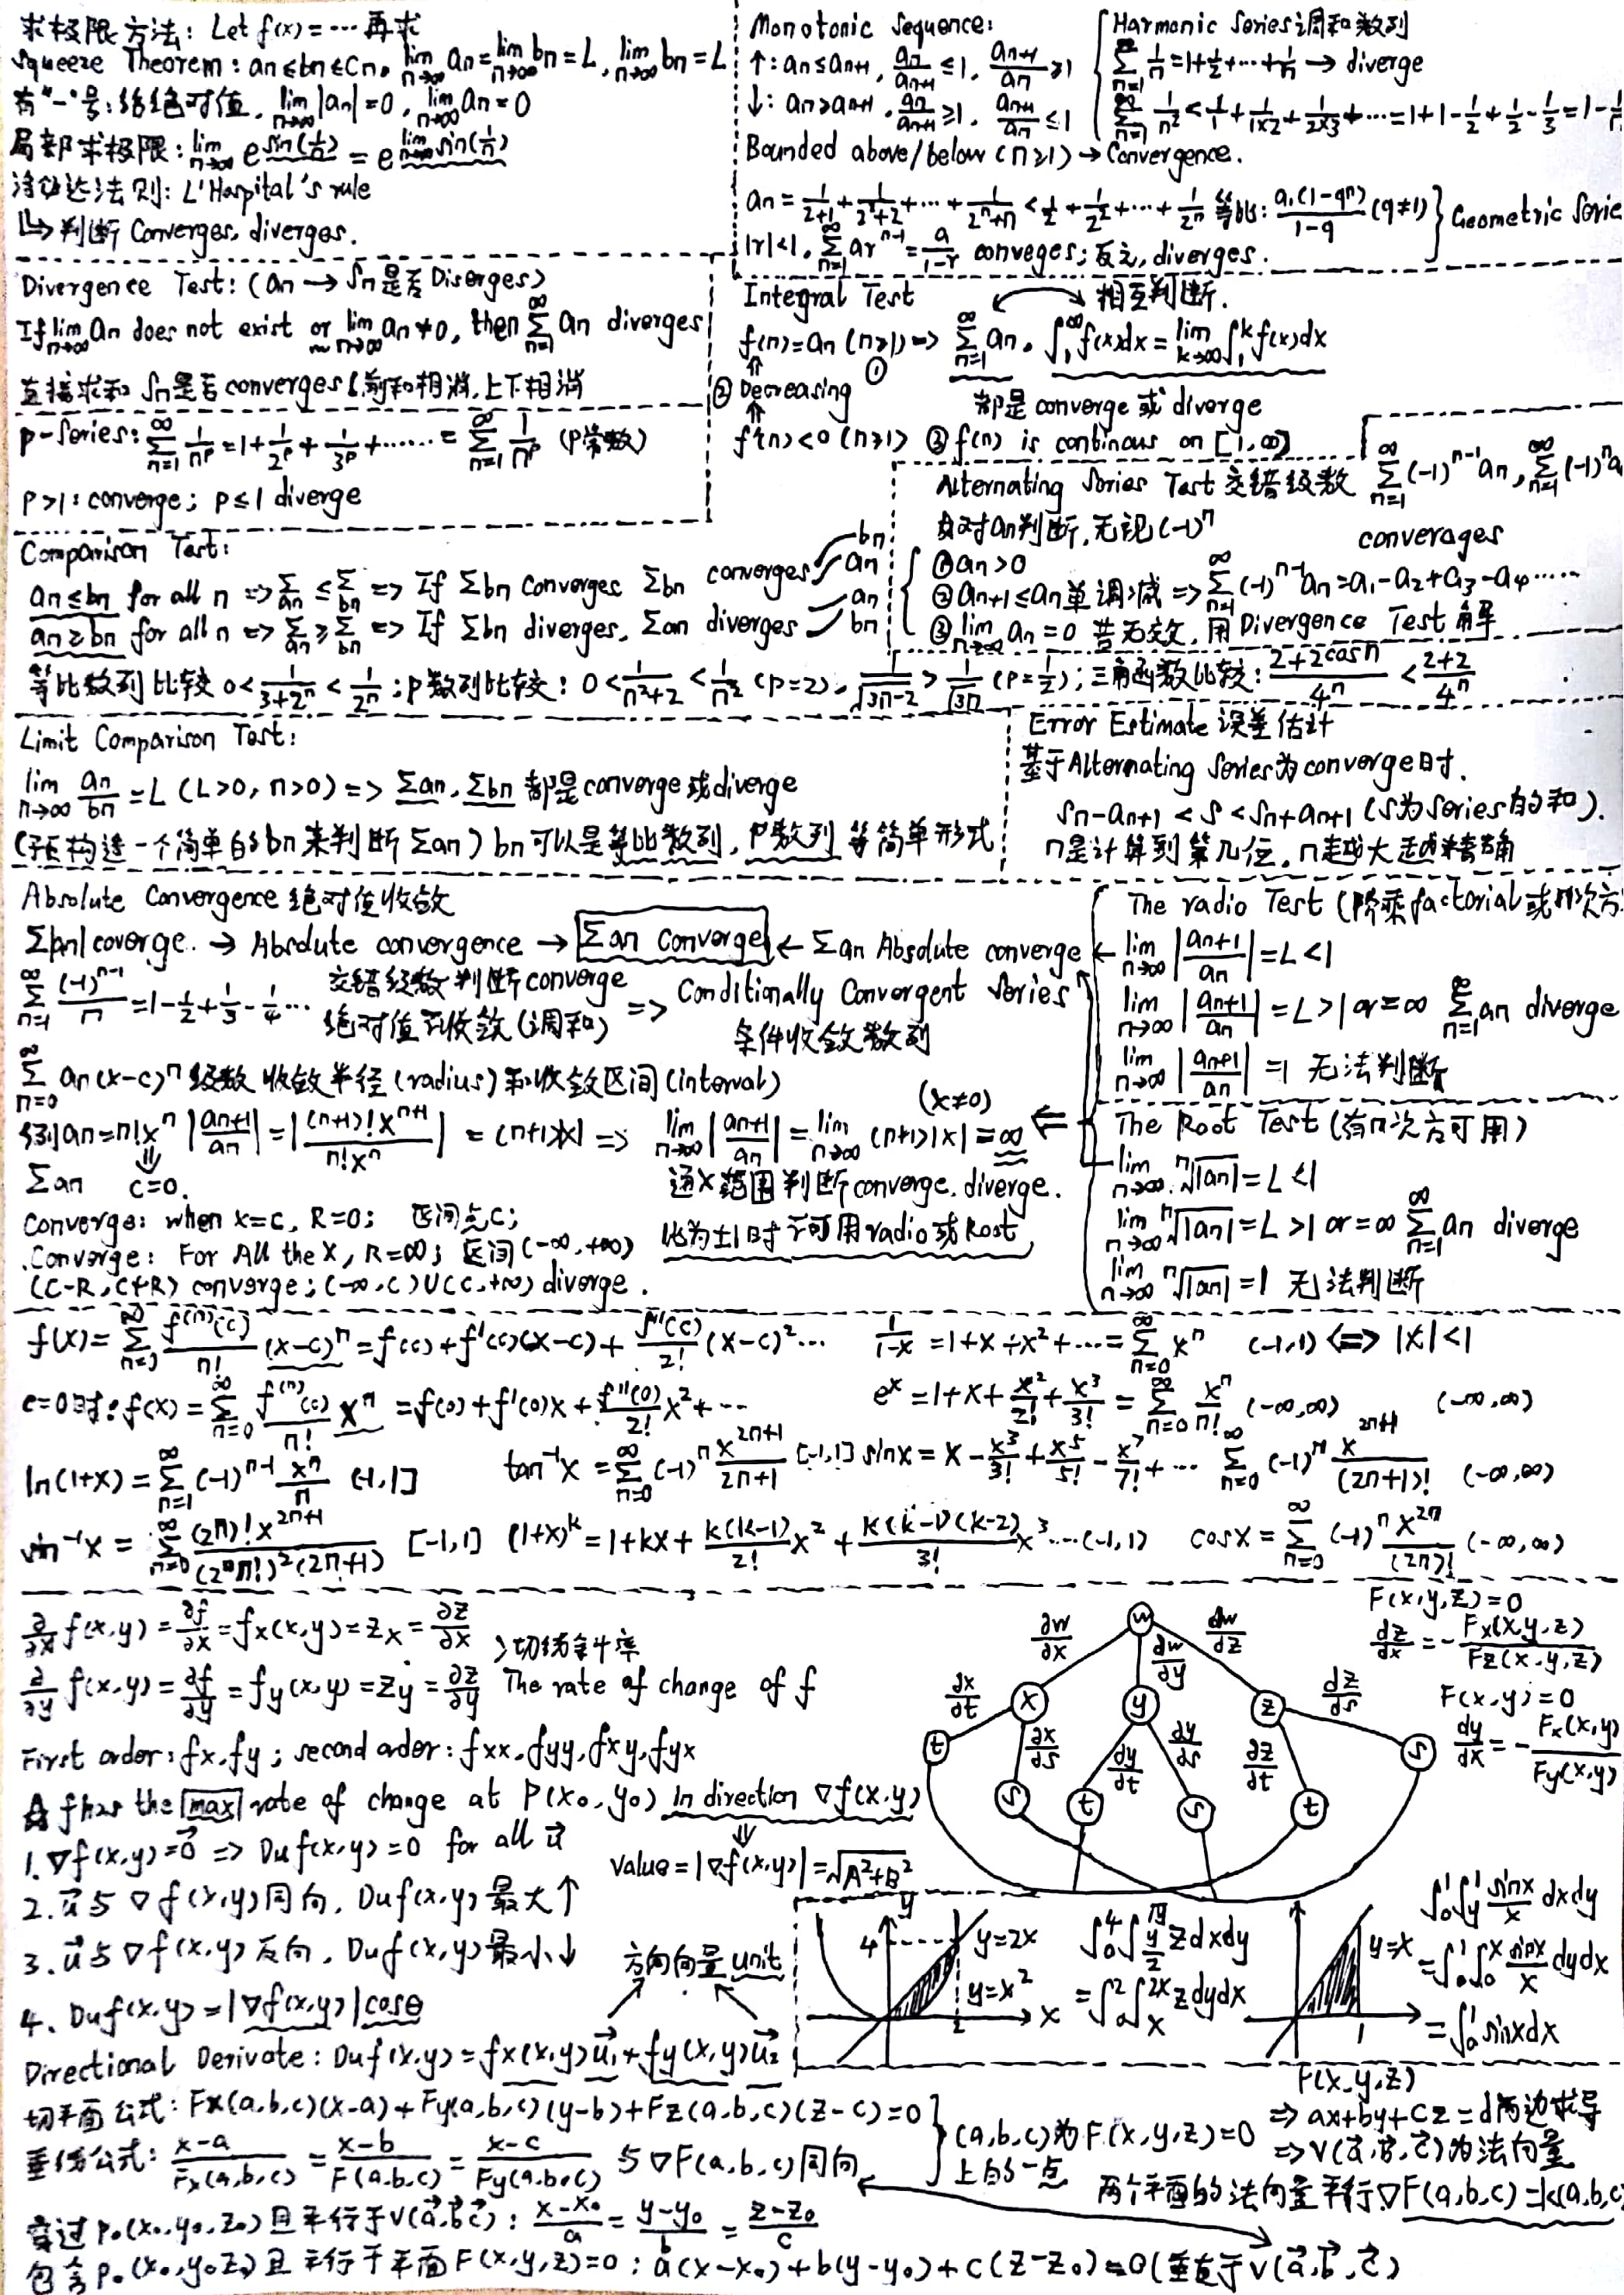 求极限方法: Let f(x) = ⋯ 再求
Squeeze Theorem: an≤bn≤Cn, lim n→∞ an = lim n→∞ bn = L, lim n→∞ bn = L
有"-"号:给绝对值, lim n→∞ |an| = 0, lim n→∞ an = 0
局部求极限: lim n→∞ e^sin(1/n) = e^lim n→∞ sin(1/n)
洛必达法则: L'Haspital's rule
↳ 判断 Converges, diverges.
Monotonic Sequence:
↑: an≤an+1, an/an+1 ≤1, an+1/an ≥1
↓: an≥an+1, an/an+1 ≥1, an+1/an ≤1
Bounded above/below (n≥1) → Convergence.
Harmonic Series 调和数列
∞∑n=1 1/n = 1+1/2+⋯+1/n → diverge
∞∑n=1 1/n² < 1/1 + 1/1×2 + 1/2×3 + ⋯ = 1+1-1/2+1/2-1/3 = 1-1/n
an = 1/2+1 + 1/2²+2 + ⋯ + 1/2ⁿ+n < 1/2 + 1/2² + ⋯ + 1/2ⁿ 等比: a₁(1-qⁿ)/1-q (q≠1) } Geometric Serie
|r|<1, ∞∑n=1 arⁿ⁻¹ = a/1-r conveges; 反之, diverges.
Divergence Test: (an → Sn是否 Diserges)
If lim n→∞ an does not exist or lim n→∞ an ≠0, then ∞∑n=1 an diverges
直接求和 Sn是否 converges (前和相消,上下相消
p-Series: ∞∑n=1 1/nᵖ = 1+1/2ᵖ+1/3ᵖ+⋯⋯ = ∞∑n=1 1/nᵖ (P常数)
P>1: converge; p≤1 diverge
Integral Test 相互判断.
f(n)=an (n≥1) => ∞∑n=1 an, ∫₁^∞ f(x)dx = lim k→∞ ∫₁^k f(x)dx
① ② Decreasing 都是 converge 或 diverge
f'(n)<0 (n≥1) ③ f(n) is continous on [1,∞]
Alternating Series Test 交错级数 ∞∑n=1 (-1)ⁿ⁻¹an, ∞∑n=1 (-1)ⁿa
只对an判断,无视(-1)ⁿ converages
①an>0
②an+1≤an 单调减 => ∞∑n=1 (-1)ⁿ⁻¹an = a₁-a₂+a₃-a₄⋯⋯
③ lim n→∞ an = 0 若无效, 用Divergence Test 解
Comparison Test:
an≤bn for all n => ∑an ≤ ∑bn => If ∑bn Converges ∑bn converges bn an
an≥bn for all n => ∑an ≥ ∑bn => If ∑bn diverges, ∑an diverges an bn
等比数列比较 0<1/3+2ⁿ<1/2ⁿ; P数列比较: 0<1/n²+2<1/n² (P=2), 1/√3n-2 > 1/√3n (P=1/2); 三角函数比较: 2+2cosn/4ⁿ < 2+2/4ⁿ
Limit Comparison Test:
lim n→∞ an/bn = L (L>0, n>0) => ∑an, ∑bn 都是converge或diverge
构造一个简单的bn来判断∑an) bn可以是等比数列, P数列 等简单形式
Error Estimate 误差估计
基于Alternating Series为converge时.
Sn-an+1 < S < Sn+an+1 (S为Series的和).
n是计算到第几位, n越大越精确
Absolute Convergence 绝对值收敛
∑|an| coverge. → Absolute convergence → ∑an Converge ← ∑an Absolute converge
∞∑n=1 (-1)ⁿ⁻¹/n = 1-1/2+1/3-1/4⋯ 交错级数判断converge => Conditionally Convergent Series
绝对值不收敛(调和) 条件收敛数列
The radio Test (阶乘factorial或n次方
lim n→∞ |an+1/an| = L<1
lim n→∞ |an+1/an| = L>1 or =∞ ∞∑n=1 an diverge
lim n→∞ |an+1/an| = 1 无法判断
The Root Test (有n次方可用)
lim n→∞ ⁿ√|an| = L<1
lim n→∞ ⁿ√|an| = L>1 or =∞ ∞∑n=1 an diverge
lim n→∞ ⁿ√|an| = 1 无法判断
∞∑n=0 an(x-c)ⁿ 级数 收敛半径(radius)和收敛区间(interval)
例 an=n!xⁿ |an+1/an| = |(n+1)!xⁿ⁺¹/n!xⁿ| = (n+1)|x| => lim n→∞ |an+1/an| = lim n→∞ (n+1)|x| = ∞ (x≠0)
∑an c=0. 通x范围判断converge, diverge.
Converge: when x=c, R=0; 区间点C; 比为±1时不可用radio或Root
Converge: For All the x, R=∞; 区间(-∞,+∞)
(C-R, C+R) converge; (-∞,c)∪(c,+∞) diverge.
f(x) = ∞∑n=0 f⁽ⁿ⁾(c)/n! (x-c)ⁿ = f(c)+f'(c)(x-c)+f''(c)/2! (x-c)²⋯ 1/1-x = 1+x+x²+⋯ = ∞∑n=0 xⁿ (-1,1) <=> |x|<1
c=0时: f(x) = ∞∑n=0 f⁽ⁿ⁾(c)/n! xⁿ = f(0)+f'(0)x+f''(0)/2! x²+⋯ eˣ = 1+x+x²/2!+x³/3! = ∞∑n=0 xⁿ/n! (-∞,∞) (-∞,∞)
ln(1+x) = ∞∑n=1 (-1)ⁿ⁻¹ xⁿ/n (-1,1] tan⁻¹x = ∞∑n=0 (-1)ⁿ x²ⁿ⁺¹/2n+1 [-1,1] sinx = x-x³/3!+x⁵/5!-x⁷/7!+⋯ ∞∑n=0 (-1)ⁿ x²ⁿ⁺¹/(2n+1)! (-∞,∞)
sin⁻¹x = ∞∑n=0 (2n)!x²ⁿ⁺¹/(2ⁿn!)²(2n+1) [-1,1] (1+x)ᵏ = 1+kx+k(k-1)/2! x²+k(k-1)(k-2)/3! x³⋯(-1,1) cosx = ∞∑n=0 (-1)ⁿ x²ⁿ/(2n)! (-∞,∞)
∂/∂x f(x,y) = ∂f/∂x = fx(x,y) = Zx = ∂z/∂x >切线斜率
∂/∂y f(x,y) = ∂f/∂y = fy(x,y) = Zy = ∂z/∂y The rate of change of f
First order: fx, fy; second order: fxx, fyy, fxy, fyx
f has the max rate of change at P(x₀,y₀) In direction ∇f(x,y)
1. ∇f(x,y)=0⃗ => Duf(x,y)=0 for all u⃗ Value=|∇f(x,y)|=√A²+B²
2. u⃗与∇f(x,y)同向, Duf(x,y)最大↑
3. u⃗与∇f(x,y)反向, Duf(x,y)最小↓ 方向向量unit
4. Duf(x,y)=|∇f(x,y)|cosθ
Directional Derivate: Duf(x,y)=fx(x,y)u₁⃗+fy(x,y)u₂⃗
w
∂w/∂x ∂w/∂y ∂w/∂z
∂x/∂t x y z ∂z/∂s
t ∂x/∂s ∂y/∂t ∂y/∂s ∂z/∂t s
s t s t
F(x,y,z)=0
dz/dx = -Fx(x,y,z)/Fz(x,y,z)
F(x,y)=0
dy/dx = -Fx(x,y)/Fy(x,y)
y 4 y=2x y=x² 2 x
∫₀⁴∫y/2^√y z dxdy
=∫₀²∫x^2x z dydx
y=x 1
∫₀¹∫y¹ sinx/x dxdy
=∫₀¹∫₀ˣ sinx/x dydx
=∫₀¹ sinxdx
切平面公式: Fx(a,b,c)(x-a)+Fy(a,b,c)(y-b)+Fz(a,b,c)(z-c)=0
垂线公式: x-a/Fx(a,b,c) = x-b/F(a,b,c) = x-c/Fy(a,b,c) 与∇F(a,b,c)同向
(a,b,c)为F(x,y,z)=0
上的一点
F(x,y,z)
=> ax+by+cz=d两边求导
=> V(a⃗,b⃗,c⃗)为法向量
两个平面的法向量平行∇F(a,b,c)=k(a,b,c
穿过P₀(x₀,y₀,z₀)且平行于V(a⃗,b⃗,c⃗): x-x₀/a = y-y₀/b = z-z₀/c
包含P₀(x₀,y₀z₀)且平行于平面F(x,y,z)=0: a(x-x₀)+b(y-y₀)+c(z-z₀)=0(垂直于V(a⃗,b⃗,c⃗)